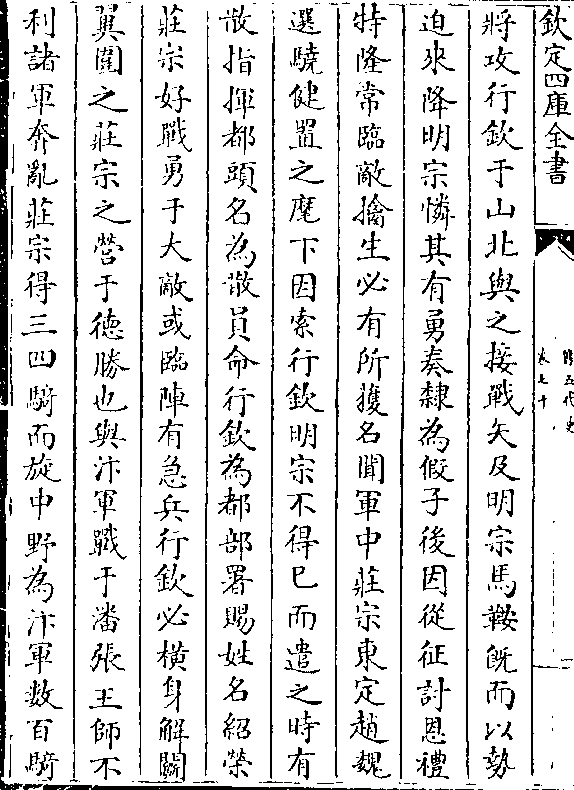 欽定四庫全書
舊五代史
卷七十
將攻行欽于山北與之接戰矢及明宗馬鞍既而以勢
迫來降明宗憐其有勇奏隸為假子後因從征討恩禮
特隆常臨敵擒生必有所獲名聞軍中莊宗東定趙魏
選驍健置之麾下因索行欽明宗不得已而遣之時有
散指揮都頭名為散員命行欽為都部署賜姓名紹榮
莊宗好戰勇于大敵或臨陣有急兵行欽必橫身解鬭
翼圍之莊宗之營于德勝也與汴軍戰于潘張王師不
利諸軍奔亂莊宗得三四騎而旋中野為汴軍數百騎